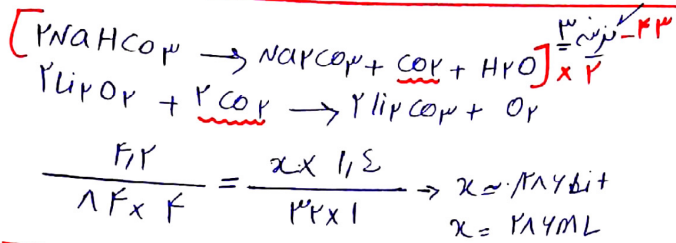 ۴۳- گزینه ۳
[۲NaHCo۳ → Na۲Co۳ + Co۲ + H۲O] × ۲
۲Li۲O۲ + ۲Co۲ → ۲li۲Co۳ + O۲
۴,۲ / ۸۴×۴ = x × ۱,۴ / ۳۲×۱ → x ≈ ۰,۲۸۶ Lit
x = ۲۸۶ mL